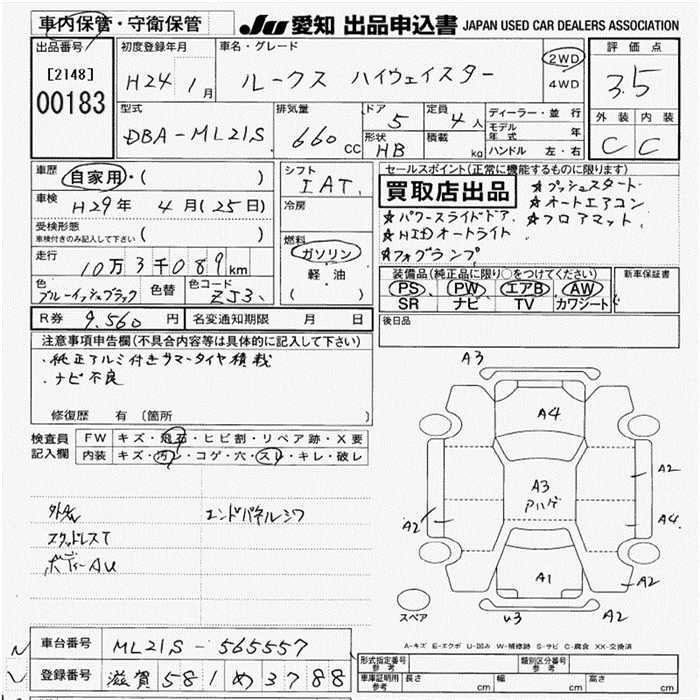 車内保管・守衛保管
JU 愛知 出品申込書 JAPAN USED CAR DEALERS ASSOCIATION
出品番号 初度登録年月 車名・グレード 評価点
[2148] H24 1月 ルークス ハイウェイスター 2WD 3.5
00183 4WD
型式 排気量 ドア 定員 ディーラー・並行 外装 内装
DBA-ML21S 660CC 5 4人 モデル年式 年 C C
形状 HB 積載 kg ハンドル 左・右
車歴 自家用・( ) シフト セールスポイント(正常に機能するものに限ります)
IAT 買取店出品 ☆プッシュスタート
車検 H29年 4月(25日) 冷房 ☆オートエアコン
☆パワースライドドア ☆フロアマット
受検形態 ( )
車検付きのみ記入して下さい
☆HIDオートライト
走行 10万3千089km 燃料 ガソリン ☆フォグランプ
軽油
( )
装備品(純正品に限り○をつけてください) 新車保証書
色 色替 色コード PS PW エアB AW
ブルーイッシュブラック ZJ3 SR ナビ TV カワシート
R券 9,560円 名変通知期限 月 日 後日品
注意事項申告欄(不具合内容等は具体的に記入して下さい)
・純正アルミ付きサマータイヤ積載
・ナビ不良
修復歴 有 (箇所 )
検査員記入欄 FW キズ・飛石・ヒビ割・リペア跡・X要
内装 キズ・汚レ・コゲ・穴・スレ・キレ・破レ
エンドパネルシワ
スタッドレスT
ボディーAU
A3
A4
A3
アハゲ
A2
A2
A4
A1
A2
スペア
U3
A2
A-キズ E-エクボ U-凹み W-補修跡 S-サビ C-腐食 XX-交換済
車台番号 ML21S-565557
登録番号 滋賀 581 め 3788
形式指定番号 参考 類別区分番号 参考
車庫証明用 参考 長さ cm 幅 cm 高さ cm